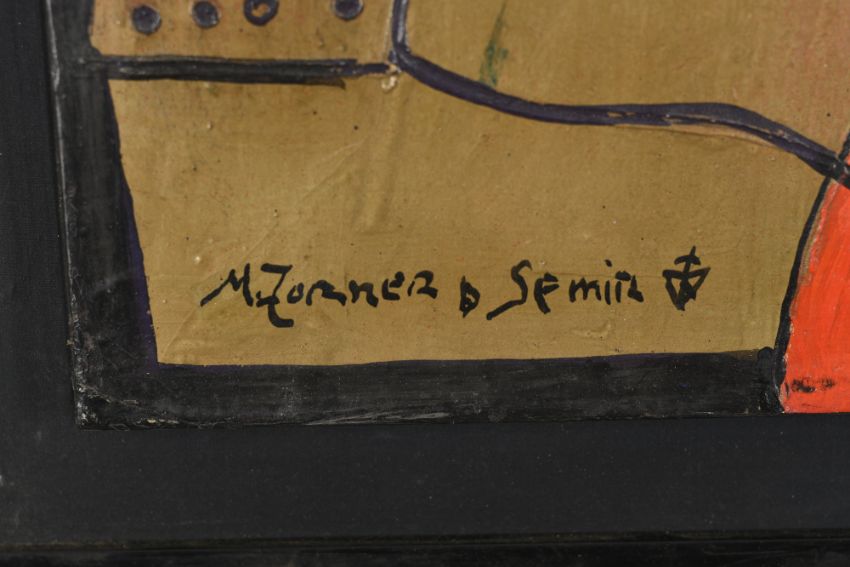 M Zorner D Semir